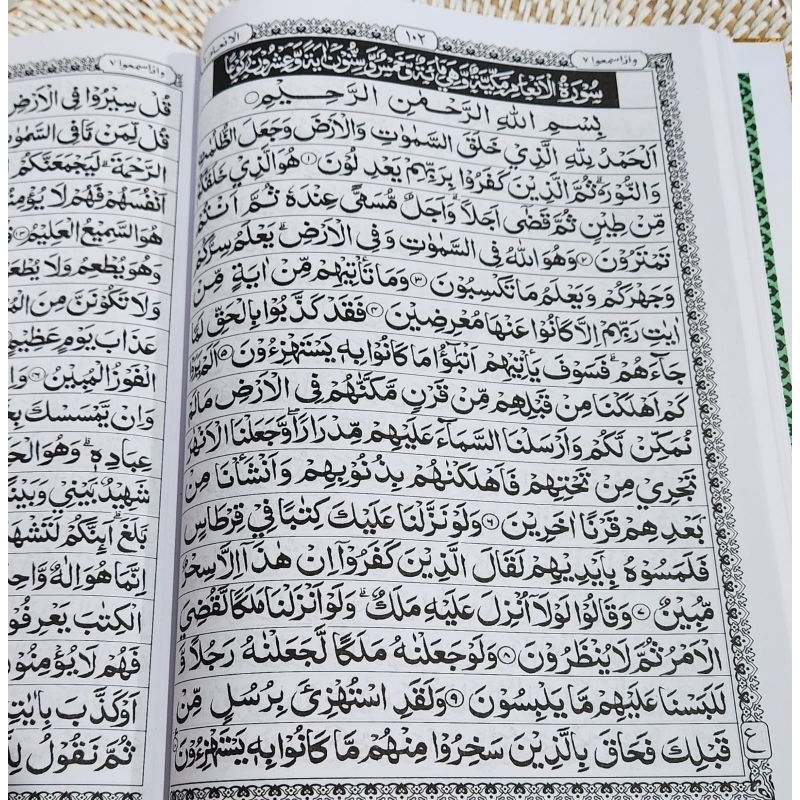 ١٠٢
الانعام
واذاسمعوا ٧
سُوْرَةُ الْاَنْعَامِ مَكِّيَّةٌ وَّهِيَ مِائَةٌ وَّخَمْسٌ وَّسِتُّوْنَ اٰيَةً وَّعِشْرُوْنَ رُكُوْعًا
بِسْمِ اللّٰهِ الرَّحْمٰنِ الرَّحِيْمِ
اَلْحَمْدُ لِلّٰهِ الَّذِيْ خَلَقَ السَّمٰوٰتِ وَالْاَرْضَ وَجَعَلَ الظُّلُمٰتِ
وَالنُّوْرَ ۗ ثُمَّ الَّذِيْنَ كَفَرُوْا بِرَبِّهِمْ يَعْدِلُوْنَ ١ هُوَالَّذِيْ خَلَقَكُمْ
مِّنْ طِيْنٍ ثُمَّ قَضٰٓى اَجَلًا ۗ وَاَجَلٌ مُّسَمًّى عِنْدَهٗ ثُمَّ اَنْتُمْ
تَمْتَرُوْنَ ٢ وَهُوَ اللّٰهُ فِى السَّمٰوٰتِ وَفِى الْاَرْضِ ۗ يَعْلَمُ سِرَّكُمْ
وَجَهْرَكُمْ وَيَعْلَمُ مَا تَكْسِبُوْنَ ٣ وَمَا تَأْتِيْهِمْ مِّنْ اٰيَةٍ مِّنْ
اٰيٰتِ رَبِّهِمْ اِلَّا كَانُوْا عَنْهَا مُعْرِضِيْنَ ٤ فَقَدْ كَذَّبُوْا بِالْحَقِّ لَمَّا
جَاۤءَهُمْ ۗ فَسَوْفَ يَأْتِيْهِمْ اَنْۢبٰۤؤُا مَا كَانُوْا بِهٖ يَسْتَهْزِءُوْنَ ٥ اَلَمْ يَرَوْا
كَمْ اَهْلَكْنَا مِنْ قَبْلِهِمْ مِّنْ قَرْنٍ مَّكَّنّٰهُمْ فِى الْاَرْضِ مَالَمْ
نُمَكِّنْ لَّكُمْ وَاَرْسَلْنَا السَّمَاۤءَ عَلَيْهِمْ مِّدْرَارًا ۖ وَّجَعَلْنَا الْاَنْهٰرَ
تَجْرِيْ مِنْ تَحْتِهِمْ فَاَهْلَكْنٰهُمْ بِذُنُوْبِهِمْ وَاَنْشَأْنَا مِنْۢ
بَعْدِهِمْ قَرْنًا اٰخَرِيْنَ ٦ وَلَوْ نَزَّلْنَا عَلَيْكَ كِتٰبًا فِيْ قِرْطَاسٍ
فَلَمَسُوْهُ بِاَيْدِيْهِمْ لَقَالَ الَّذِيْنَ كَفَرُوْٓا اِنْ هٰذَآ اِلَّا سِحْرٌ
مُّبِيْنٌ ٧ وَقَالُوْا لَوْلَآ اُنْزِلَ عَلَيْهِ مَلَكٌ ۗ وَلَوْ اَنْزَلْنَا مَلَكًا لَّقُضِيَ
الْاَمْرُ ثُمَّ لَا يُنْظَرُوْنَ ٨ وَلَوْ جَعَلْنٰهُ مَلَكًا لَّجَعَلْنٰهُ رَجُلًا وَّ
لَلَبَسْنَا عَلَيْهِمْ مَّا يَلْبِسُوْنَ ٩ وَلَقَدِ اسْتُهْزِئَ بِرُسُلٍ مِّنْ
قَبْلِكَ فَحَاقَ بِالَّذِيْنَ سَخِرُوْا مِنْهُمْ مَّا كَانُوْا بِهٖ يَسْتَهْزِءُوْنَ
ع
واذاسمعوا ٧
قُلْ سِيْرُوْا فِى الْاَرْضِ
قُلْ لِّمَنْ مَّا فِى السَّمٰوٰتِ
الرَّحْمَةَ ۗ لَيَجْمَعَنَّكُمْ
اَنْفُسَهُمْ فَهُمْ لَا يُؤْمِنُوْنَ
هُوَ السَّمِيْعُ الْعَلِيْمُ ١٣
وَهُوَ يُطْعِمُ وَلَا يُطْعَمُ
وَلَا تَكُوْنَنَّ مِنَ
عَذَابَ يَوْمٍ عَظِيْمٍ
الْفَوْزُ الْمُبِيْنُ ١٦
وَاِنْ يَّمْسَسْكَ
عِبَادِهٖ ۗ وَهُوَ
شَهِيْدٌۢ بَيْنِيْ وَبَيْنَ
بَلَغَ ۗ اَىِٕنَّكُمْ لَتَشْهَدُوْنَ
اِنَّمَا هُوَ اِلٰهٌ وَّاحِدٌ
الْكِتٰبَ يَعْرِفُوْنَهٗ
فَهُمْ لَا يُؤْمِنُوْنَ
اَوْ كَذَّبَ بِاٰيٰتِهٖ
ثُمَّ نَقُوْلُ